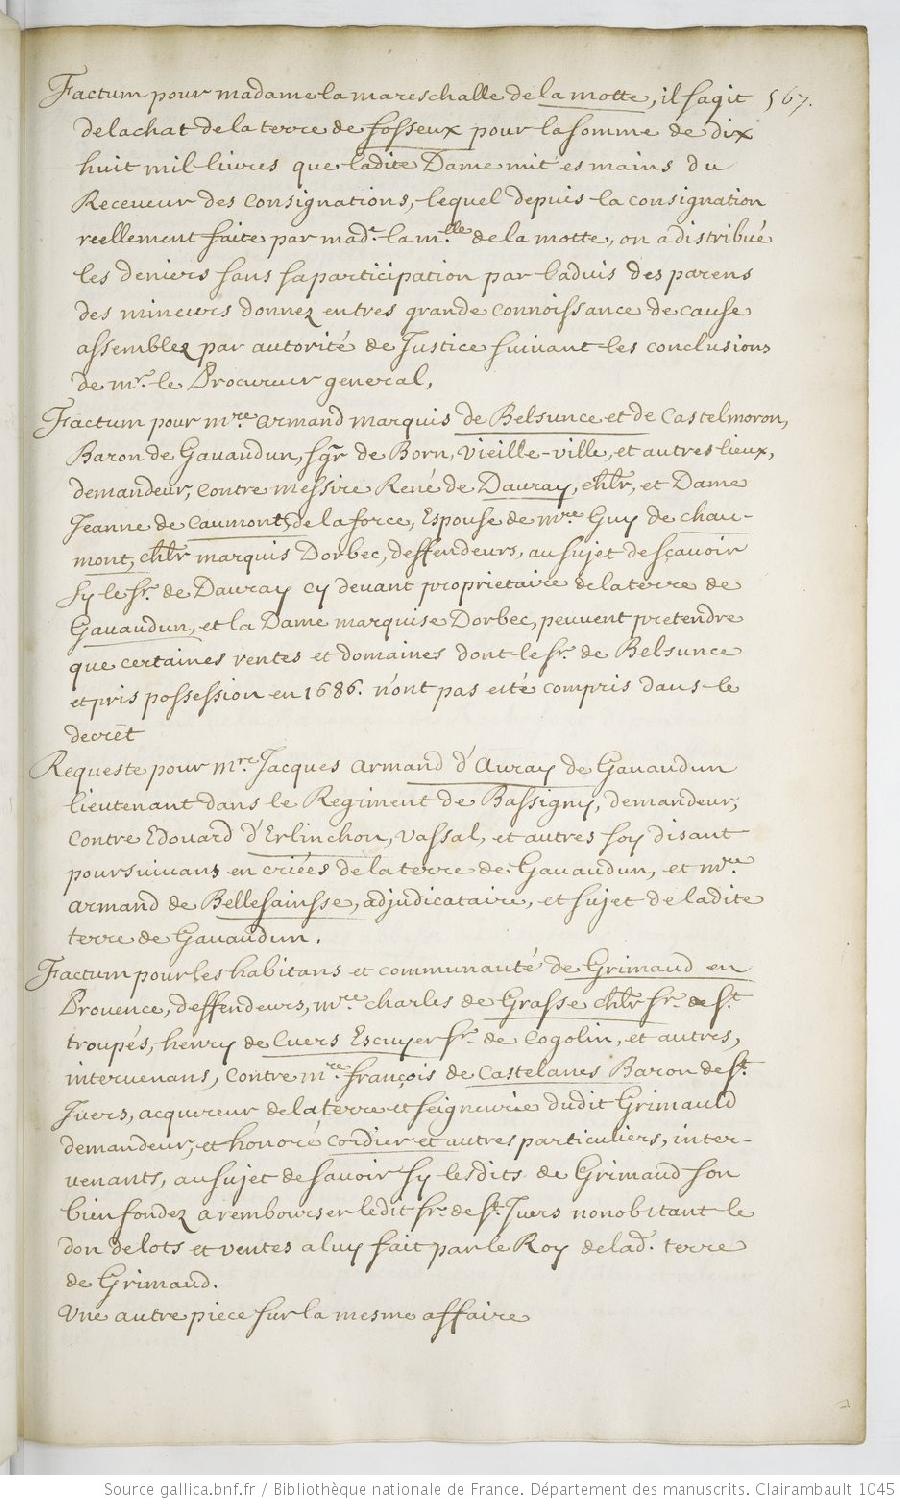 Factum pour madame la mareschalle de la motte, il s'agit 567.
de lachat de la terre de fosseux pour la somme de dix
huit mil livres que ladite Dame mit es mains du
Receveur des Consignations, lequel depuis la consignation
reellement faite par made. la mlle. de la motte, on a distribué
les deniers sans sa participation par l'aduis des parens
des mineurs donnez en tres grande connoissance de cause
assemblez par autorité de Justice suivant les conclusions
de mr. le Procureur general,
Factum pour mre armand marquis de Belsunce et de Castelmoron,
Baron de Gavaudun, sgr de Born, vieille-ville, et autres lieux,
demandeur, contre messire René de Dauray, chlr, et Dame
Jeanne de Caumont, de la force, Espouse de mre Guy de chau-
mont, chlr marquis Dorbec, deffendeurs, au sujet de sçavoir
sy le sr. de Dauray cy devant proprietaire de la terre de
Gavaudun, et la Dame marquise Dorbec, peuvent pretendre
que certaines rentes et domaines dont le sr. de Belsunce
et pris possession en 1686. n'ont pas eité compris dans le
decret
Requeste pour mre Jacques armand d'Auray de Gavaudun
lieutenant dans le Regiment de Bassigny, demandeur,
contre Edouard d'Erlinchon, vassal, et autres soy disant
poursuivans en criées de la terre de Gavaudun, et mre
armand de Bellesainsse, adjudicataire, et sujet de ladite
terre de Gavaudun.
Factum pour les habitans et communauté de Grimaud en
Provence, deffendeurs, mre charles de Grasse chlr sr. de st
troupés, henry de Cuers Escuyer sr. de Cogolin, et autres,
intervenans, contre mre françois de Castelanes Baron de st.
Juers, acquereur de la terre et seigneurie dudit Grimauld
demandeur, et honoré Cordier et autres particuliers, inter-
venants, au sujet de savoir sy lesdits de Grimaud son
bien fondez a rembourser ledit sr. de st. Juers nonobstant le
don de lots et ventes a luy fait par le Roy de lad. terre
de Grimaud.
Une autre piece sur la mesme affaire
Source gallica.bnf.fr / Bibliothèque nationale de France. Département des manuscrits. Clairambault 1045